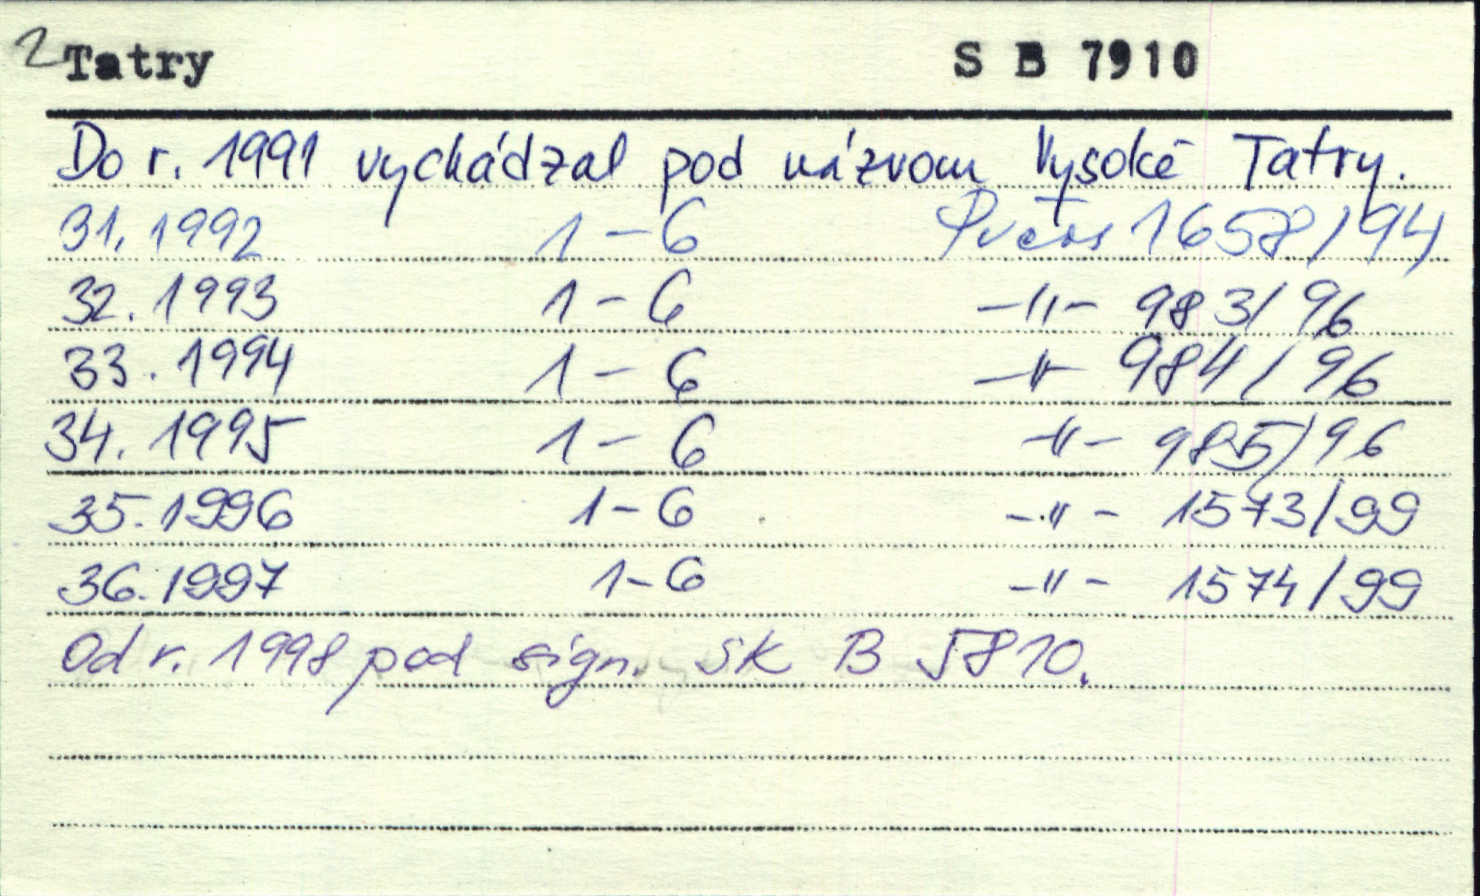 2 Tatry S B 7910
Do r. 1991 vychádzal pod názvom Vysoké Tatry.
31. 1992 1-6 1658/94
32. 1993 1-6 -"- 983/96
33. 1994 1-6 -"- 984/96
34. 1995 1-6 -"- 985/96
35. 1996 1-6 -"- 1573/99
36. 1997 1-6 -"- 1574/99
Od r. 1998 pod sign. SK B 5810.